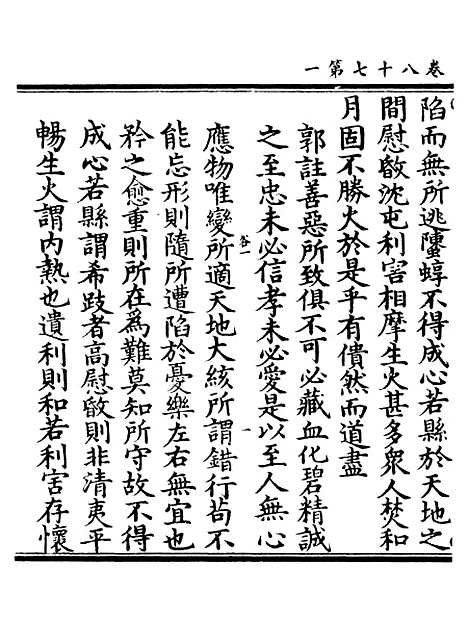 卷八十七第一
陷而無所逃螴蜳不得成心若縣於天地之
間慰暋沈屯利害相摩生火甚多衆人焚和
月固不勝火於是乎有僓然而道盡
郭註善惡所致俱不可必藏血化碧精誠
之至忠未必信孝未必愛是以至人無心
應物唯變所適天地大絯所謂錯行茍不
能忘形則隨所遭陷於憂樂左右無宜也
矜之愈重則所在爲難莫知所守故不得
成心若縣謂希跂者高慰暋則非清夷平
暢生火謂内熱也遺利則和若利害存懷